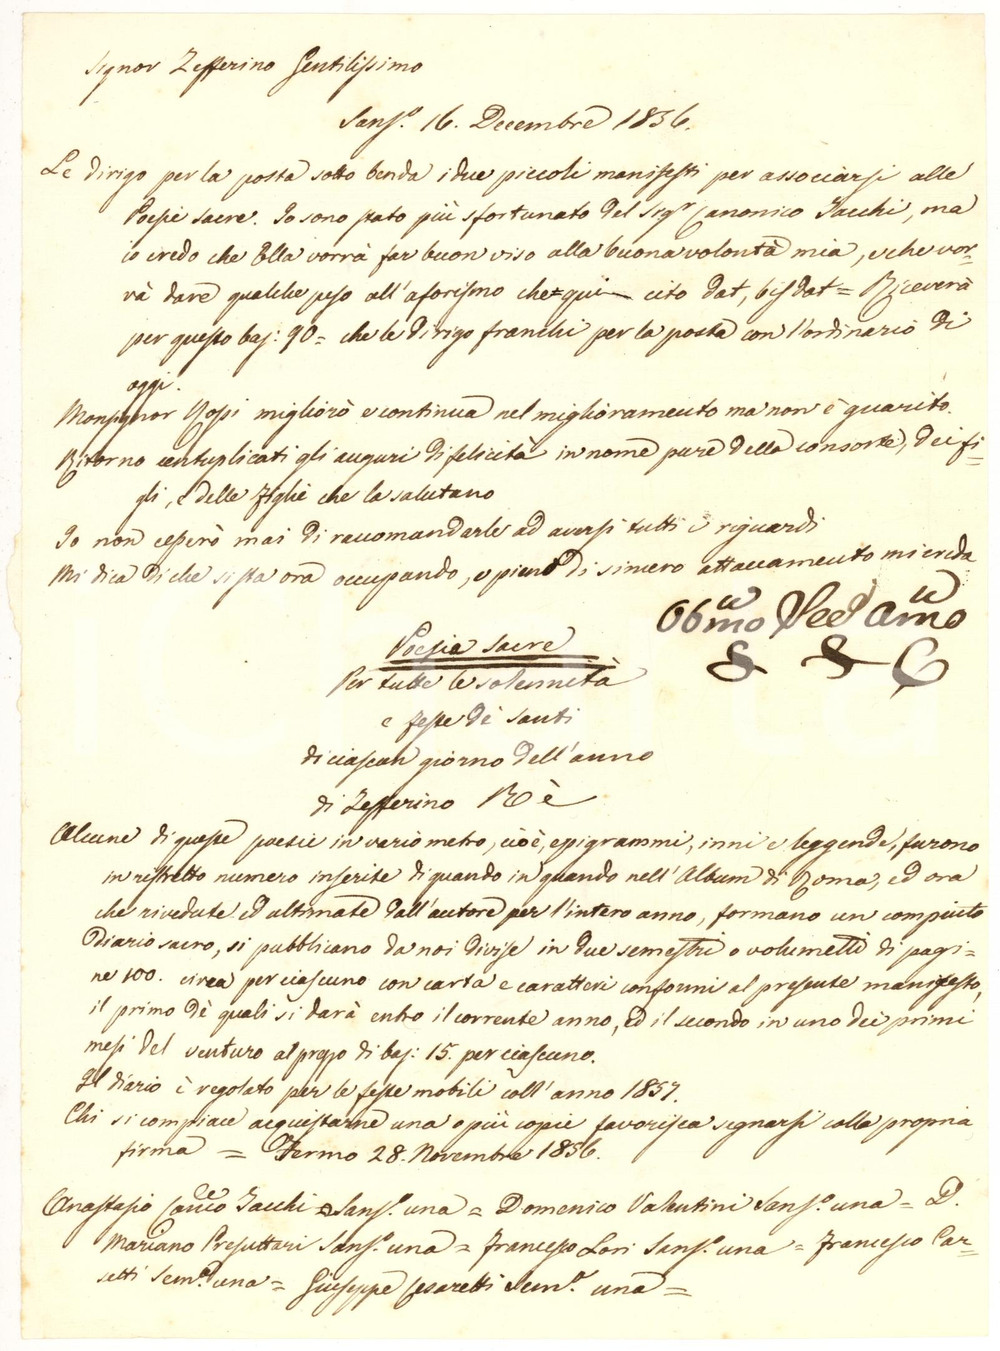 Signor Zefferino Gentilissimo
Sans.o 16. Decembre 1856.
Le dirigo per la posta sotto benda i due piccoli manifesti per associarsi alle
Poesie sacre. Io sono stato più sfortunato del Sig.r Canonico Zacchi, ma
io credo che Ella vorrà far buon viso alla buona volontà mia, e che vor=
rà dare qualche peso all'aforismo che qui cito dat, bis dat = Riceverà
per questo baj: 90 = che le dirigo franchi per la posta con l'ordinario di
oggi.
Monsignor Rossi migliorò e continua nel miglioramento ma non è guarito.
Ritorno centuplicati gli auguri di felicità in nome pure della consorte, dei fi=
gli, e delle figlie che la salutano
Io non cesserò mai di raccomandarle ad aversi tutti i riguardi
Mi dica di che si sta ora occupando, e pieno di sincero attaccamento mi creda
Obmo
Amo
Poesie sacre
Per tutte le solennità
e feste dè santi
di ciascun giorno dell'anno
di Zefferino Rè
Alcune di queste poesie in vario metro, cioè, epigrammi, inni e leggende, furono
in ristretto numero inserite di quando in quando nell'Album di Roma, ed ora
che rivedute ed ultimate dall'autore per l'intero anno, formano un compiuto
Diario sacro, si pubblicano da noi divise in due semestri o volumetti di pagi=
ne 100. circa per ciascuno con carta e caratteri conformi al presente manifesto,
il primo dè quali si darà entro il corrente anno, ed il secondo in uno dei primi
mesi del venturo al prezzo di baj: 15. per ciascuno.
Il diario è regolato per le feste mobili coll'anno 1857.
Chi si compiace acquistarne una o più copie favorisca segnarsi colla propria
firma = Fermo 28. Novembre 1856.
Anastasio Can.co Zacchi = Sans.o una = Domenico Valentini Sans.o una = D.
Mariano Presuttari Sans.o una = Francesco Lori Sans.o una = Francesco Car=
setti Sem.o una = Giuseppe Cesaretti Sem.o una =